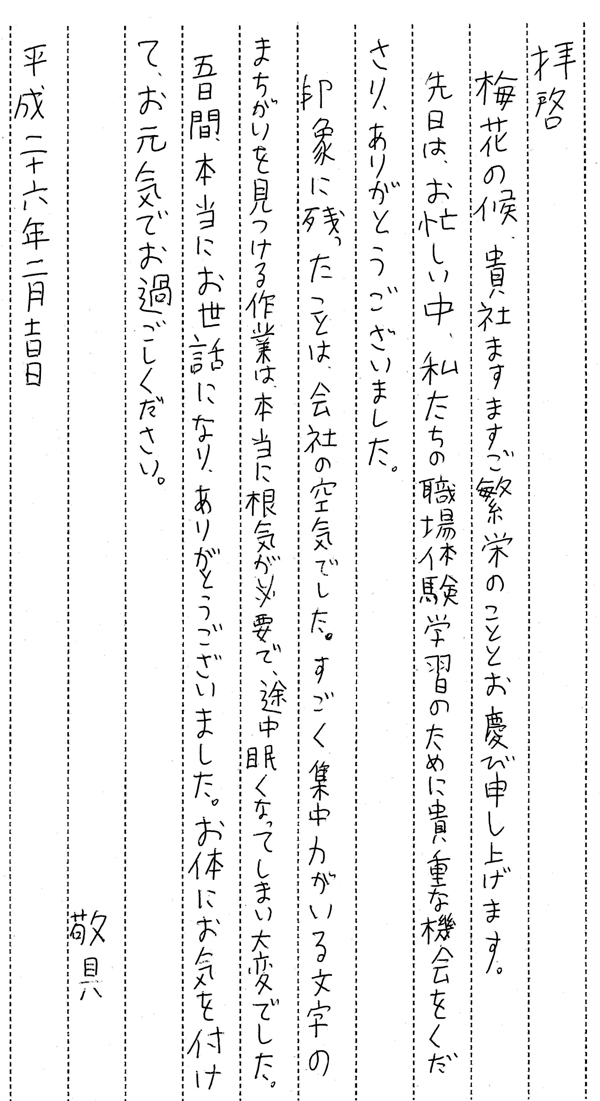 拝啓
梅花の候、貴社ますますご繁栄のこととお慶び申し上げます。
先日は、お忙しい中、私たちの職場体験学習のために貴重な機会をくだ
さり、ありがとうございました。
印象に残ったことは、会社の空気でした。すごく集中力がいる文字の
まちがいを見つける作業は、本当に根気が必要で、途中眠くなってしまい大変でした。
五日間、本当にお世話になり、ありがとうございました。お体にお気を付け
て、お元気でお過ごしください。
敬具
平成二十六年二月吉日